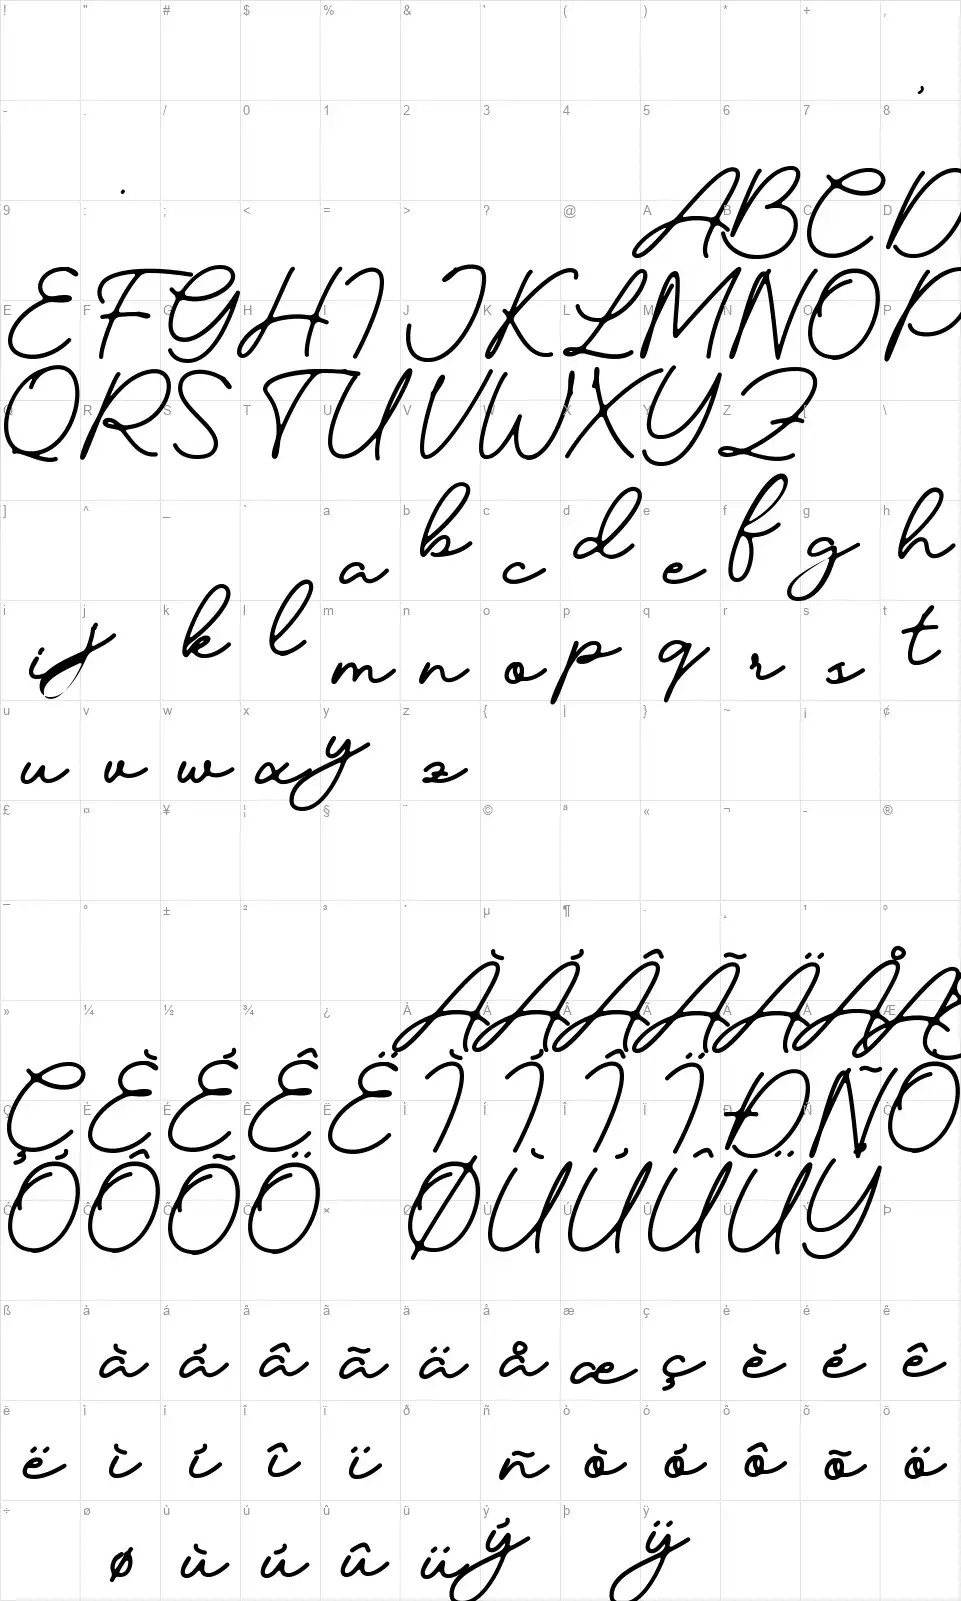 ! " # $ % & ' ( ) * + ,
,
- . / 0 1 2 3 4 5 6 7 8
.
9 : ; < = > ? @ A B C D
A B C D
E F G H I J K L M N O P
E F G H I J K L M N O P
Q R S T U V W X Y Z [ \
Q R S T U V W X Y Z
] ^ _ ` a b c d e f g h
a b c d e f g h
i j k l m n o p q r s t
i j k l m n o p q r s t
u v w x y z { | } ~ ¡ ¢
u v w x y z
£ ¤ ¥ ¦ § ¨ © ª « ¬ - ®
¯ ° ± ² ³ ´ µ ¶ · ¸ ¹ º
» ¼ ½ ¾ ¿ À Á Â Ã Ä Å Æ
À Á Â Ã Ä Å Æ
Ç È É Ê Ë Ì Í Î Ï Ð Ñ Ò
Ç È É Ê Ë Ì Í Î Ï Ð Ñ Ò
Ó Ô Õ Ö × Ø Ù Ú Û Ü Ý Þ
Ó Ô Õ Ö Ø Ù Ú Û Ü Ý
ß à á â ã ä å æ ç è é ê
à á â ã ä å æ ç è é ê
ë ì í î ï ð ñ ò ó ô õ ö
ë ì í î ï ñ ò ó ô õ ö
÷ ø ù ú û ü ý þ ÿ
ø ù ú û ü ý ÿ